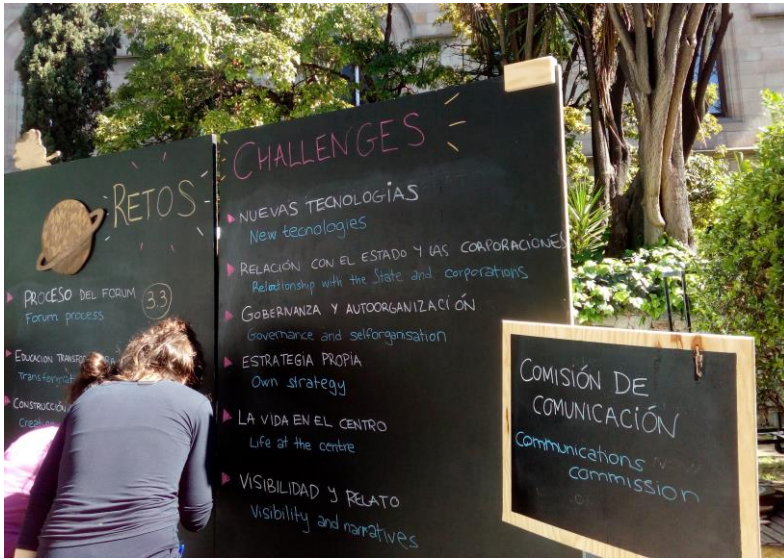 RETOS
PROCESO DEL FORUM 3.3
Forum process
EDUCACION
CONSTRUCCIÓN
CHALLENGES
NUEVAS TECNOLOGIAS
New tecnologies
RELACIÓN CON EL ESTADO Y LAS CORPORACIONES
Relationship with the State and corporations
GOBERNANZA Y AUTOORGANIZACIÓN
Governance and selforganisation
ESTRATEGIA PROPIA
Own strategy
LA VIDA EN EL CENTRO
Life at the centre
VISIBILIDAD Y RELATO
Visibility and narratives
COMISIÓN DE
COMUNICACIÓN
Communications
commission